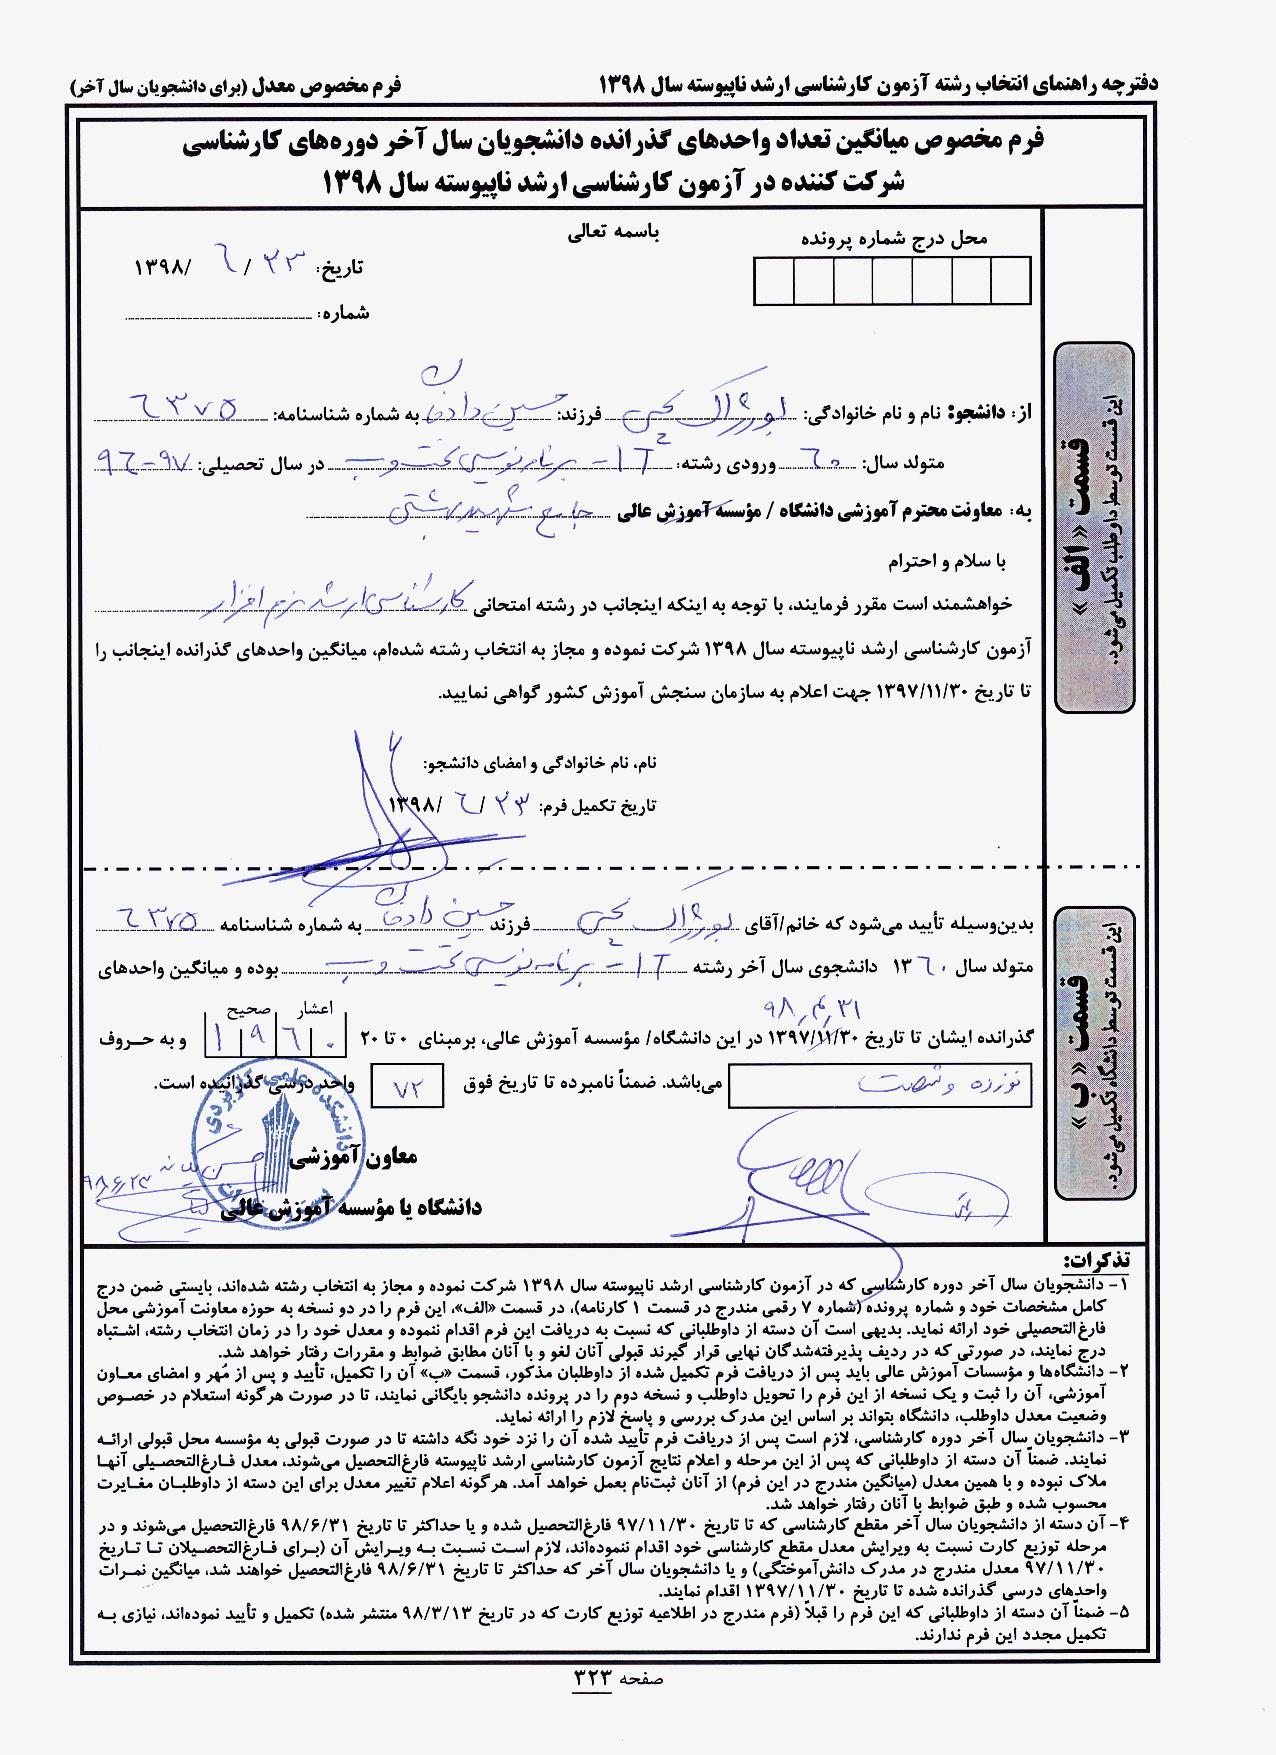 دفترچه راهنمای انتخاب رشته آزمون کارشناسی ارشد ناپیوسته سال ۱۳۹۸
فرم مخصوص معدل (برای دانشجویان سال آخر)
فرم مخصوص میانگین تعداد واحدهای گذرانده دانشجویان سال آخر دوره‌های کارشناسی
شرکت کننده در آزمون کارشناسی ارشد ناپیوسته سال ۱۳۹۸
باسمه تعالی
محل درج شماره پرونده
تاریخ: ۲۳ / ۶ /۱۳۹۸
شماره:
قسمت « الف »
این قسمت توسط داوطلب تکمیل می‌شود.
از: دانشجو: نام و نام خانوادگی: فرزند: حسین به شماره شناسنامه: ۶۳۷۵
متولد سال: ۶۰ ورودی رشته: IT - برنامه نویسی تحت وب در سال تحصیلی: ۹۷-۹۶
به: معاونت محترم آموزشی دانشگاه / مؤسسه آموزش عالی جامع شهید بهشتی
با سلام و احترام
خواهشمند است مقرر فرمایند، با توجه به اینکه اینجانب در رشته امتحانی کارشناسی ارشد نرم افزار
آزمون کارشناسی ارشد ناپیوسته سال ۱۳۹۸ شرکت نموده و مجاز به انتخاب رشته شده‌ام، میانگین واحدهای گذرانده اینجانب را
تا تاریخ ۱۳۹۷/۱۱/۳۰ جهت اعلام به سازمان سنجش آموزش کشور گواهی نمایید.
نام، نام خانوادگی و امضای دانشجو:
تاریخ تکمیل فرم: ۲۳ / ۶ /۱۳۹۸
قسمت « ب »
این قسمت توسط دانشگاه تکمیل می‌شود.
بدین‌وسیله تأیید می‌شود که خانم/آقای فرزند حسین به شماره شناسنامه ۶۳۷۵
متولد سال ۱۳۶۰ دانشجوی سال آخر رشته IT - برنامه نویسی تحت وب بوده و میانگین واحدهای
۹۸،۶،۳۱
اعشار صحیح
گذرانده ایشان تا تاریخ ۱۳۹۷/۱۱/۳۰ در این دانشگاه/ مؤسسه آموزش عالی، برمبنای ۰ تا ۲۰ ۱ ۹ ۶ ۰ و به حروف
نوزده و شصت می‌باشد. ضمناً نامبرده تا تاریخ فوق ۷۲ واحد درسی گذرانیده است.
دانشکده علمی کاربردی
معاون آموزشی
۹۸،۶،۲۳
دانشگاه یا مؤسسه آموزش عالی
تذکرات:
۱- دانشجویان سال آخر دوره کارشناسی که در آزمون کارشناسی ارشد ناپیوسته سال ۱۳۹۸ شرکت نموده و مجاز به انتخاب رشته شده‌اند، بایستی ضمن درج
کامل مشخصات خود و شماره پرونده (شماره ۷ رقمی مندرج در قسمت ۱ کارنامه)، در قسمت «الف»، این فرم را در دو نسخه به حوزه معاونت آموزشی محل
فارغ‌التحصیلی خود ارائه نماید. بدیهی است آن دسته از داوطلبانی که نسبت به دریافت این فرم اقدام ننموده و معدل خود را در زمان انتخاب رشته، اشتباه
درج نمایند، در صورتی که در ردیف پذیرفته‌شدگان نهایی قرار گیرند قبولی آنان لغو و با آنان مطابق ضوابط و مقررات رفتار خواهد شد.
۲- دانشگاه‌ها و مؤسسات آموزش عالی باید پس از دریافت فرم تکمیل شده از داوطلبان مذکور، قسمت «ب» آن را تکمیل، تأیید و پس از مُهر و امضای معاون
آموزشی، آن را ثبت و یک نسخه از این فرم را تحویل داوطلب و نسخه دوم را در پرونده دانشجو بایگانی نمایند، تا در صورت هرگونه استعلام در خصوص
وضعیت معدل داوطلب، دانشگاه بتواند بر اساس این مدرک بررسی و پاسخ لازم را ارائه نماید.
۳- دانشجویان سال آخر دوره کارشناسی، لازم است پس از دریافت فرم تأیید شده آن را نزد خود نگه داشته تا در صورت قبولی به مؤسسه محل قبولی ارائه
نمایند. ضمناً آن دسته از داوطلبانی که پس از این مرحله و اعلام نتایج آزمون کارشناسی ارشد ناپیوسته فارغ‌التحصیل می‌شوند، معدل فارغ‌التحصیلی آنها
ملاک نبوده و با همین معدل (میانگین مندرج در این فرم) از آنان ثبت‌نام بعمل خواهد آمد. هرگونه اعلام تغییر معدل برای این دسته از داوطلبان مغایرت
محسوب شده و طبق ضوابط با آنان رفتار خواهد شد.
۴- آن دسته از دانشجویان سال آخر مقطع کارشناسی که تا تاریخ ۹۷/۱۱/۳۰ فارغ‌التحصیل شده و یا حداکثر تا تاریخ ۹۸/۶/۳۱ فارغ‌التحصیل می‌شوند و در
مرحله توزیع کارت نسبت به ویرایش معدل مقطع کارشناسی خود اقدام ننموده‌اند، لازم است نسبت به ویرایش آن (برای فارغ‌التحصیلان تا تاریخ
۹۷/۱۱/۳۰ معدل مندرج در مدرک دانش‌آموختگی) و یا دانشجویان سال آخر که حداکثر تا تاریخ ۹۸/۶/۳۱ فارغ‌التحصیل خواهند شد، میانگین نمرات
واحدهای درسی گذرانده شده تا تاریخ ۱۳۹۷/۱۱/۳۰ اقدام نمایند.
۵- ضمناً آن دسته از داوطلبانی که این فرم را قبلاً (فرم مندرج در اطلاعیه توزیع کارت که در تاریخ ۹۸/۳/۱۳ منتشر شده) تکمیل و تأیید نموده‌اند، نیازی به
تکمیل مجدد این فرم ندارند.
صفحه ۳۲۳